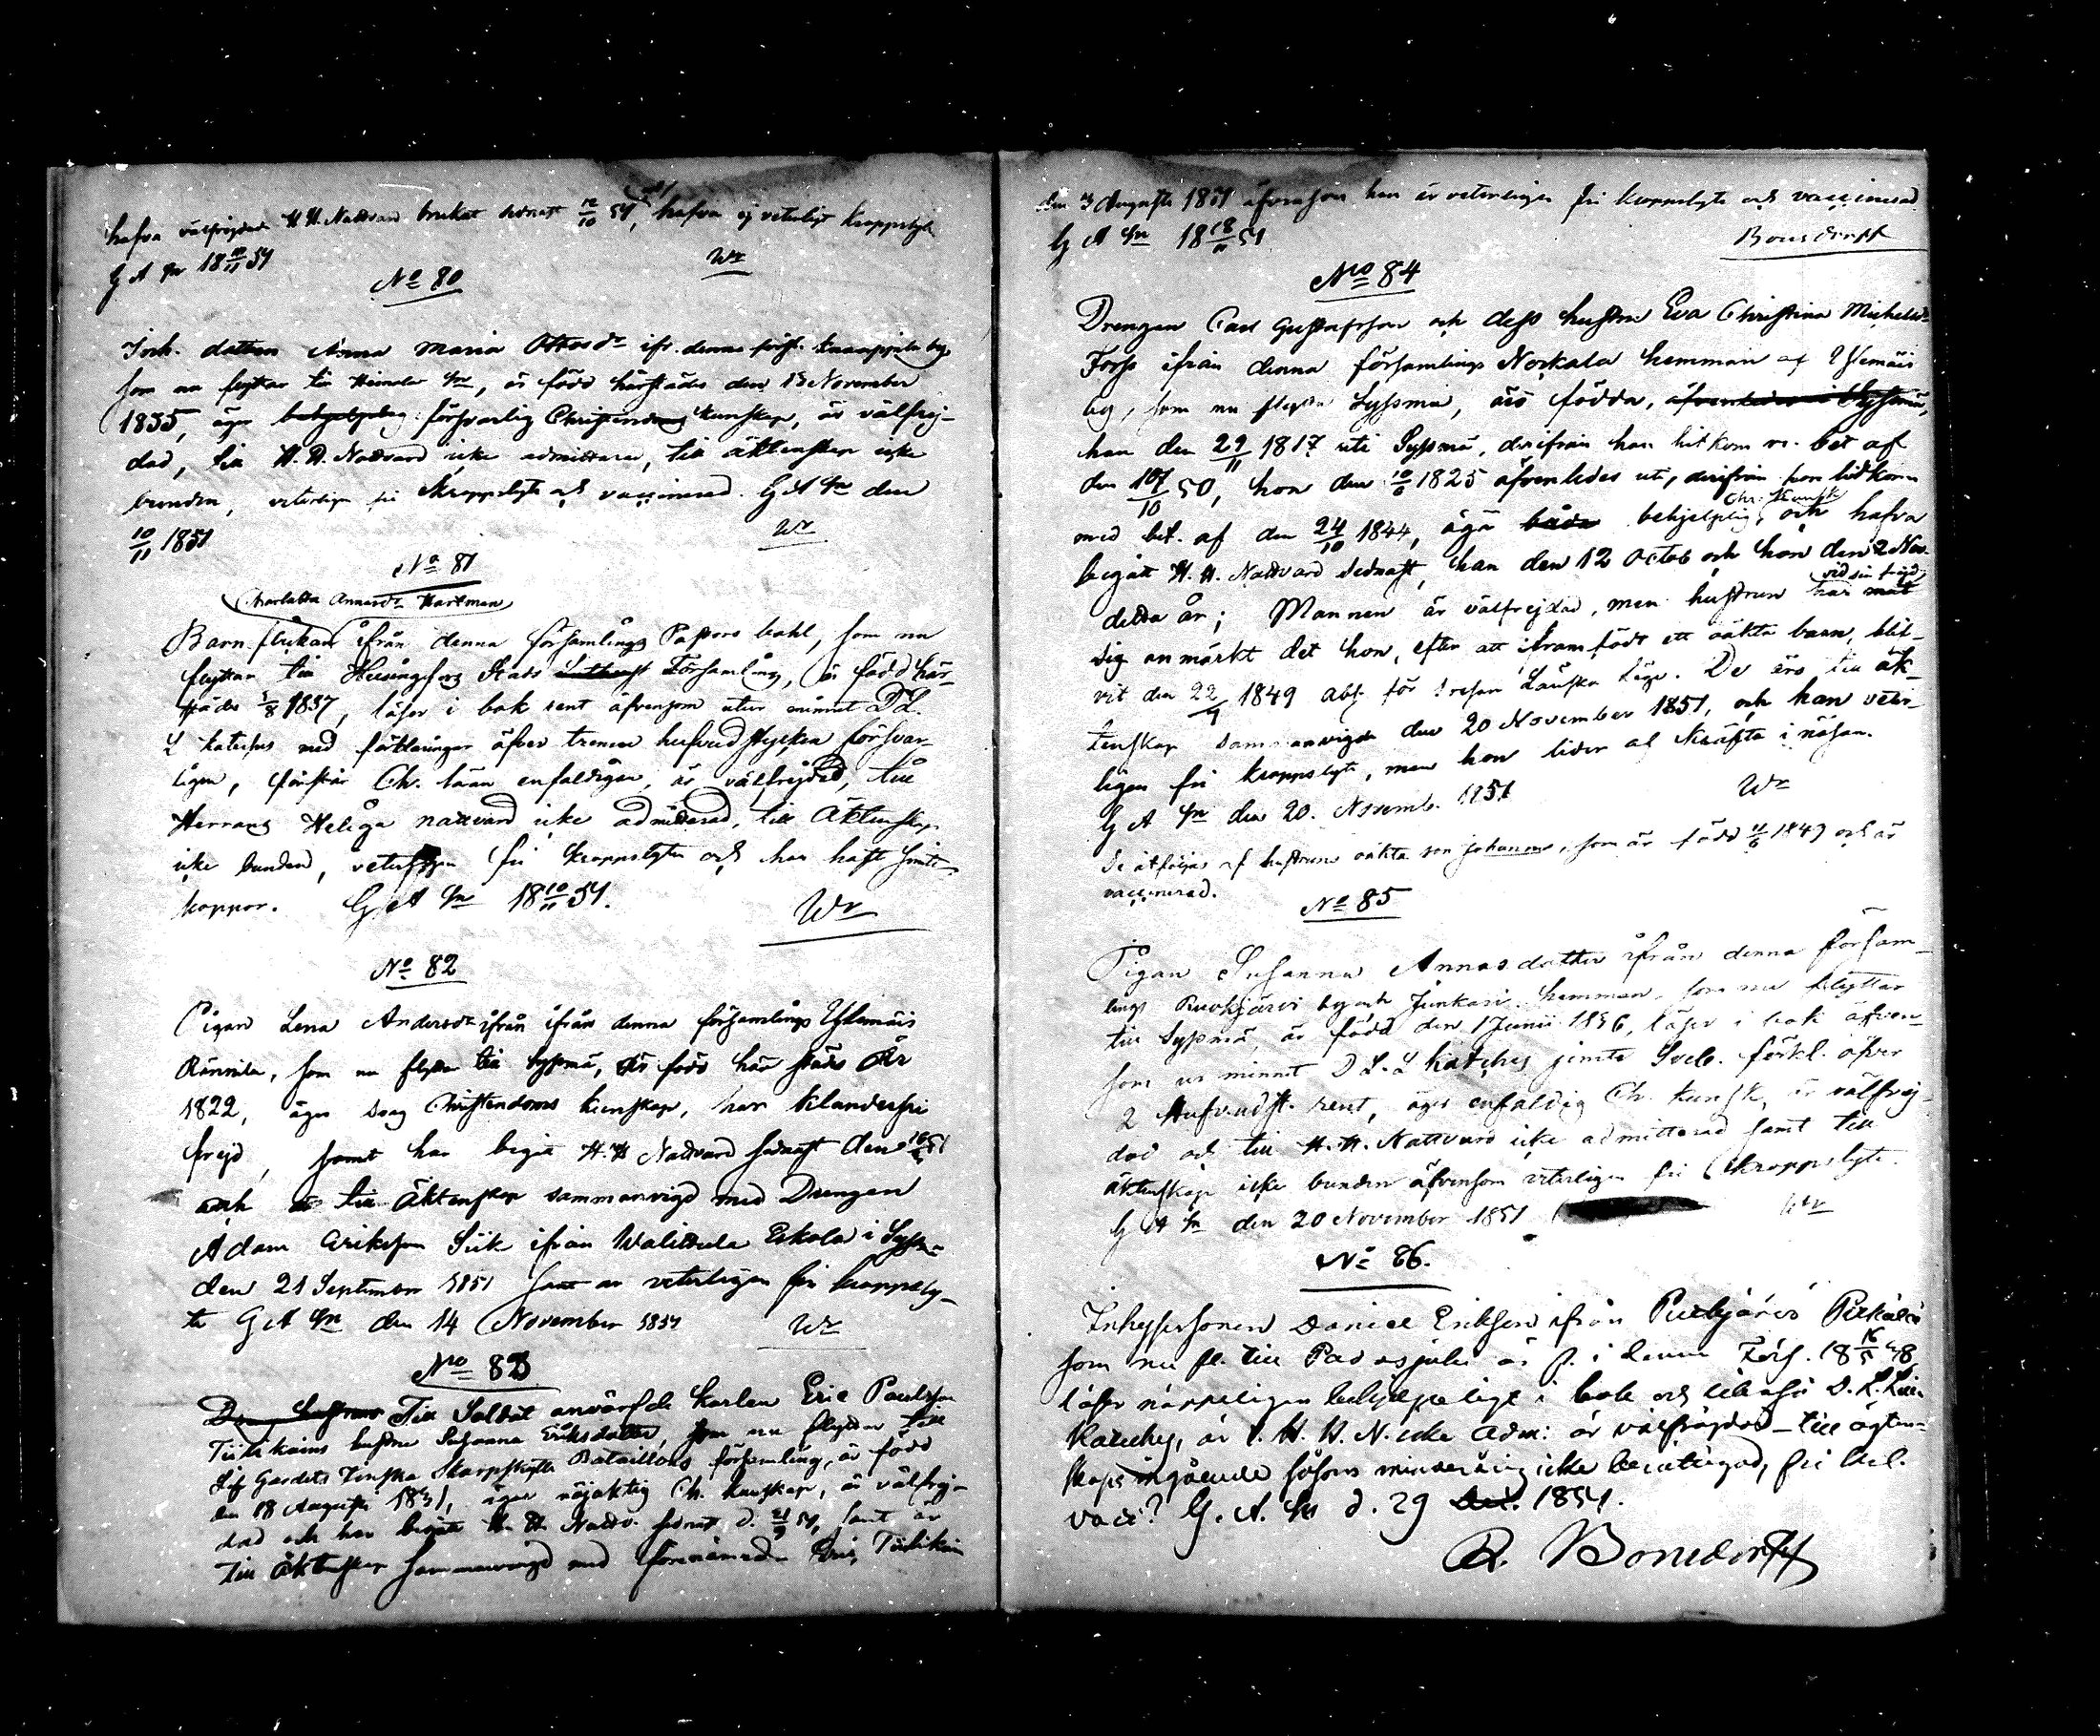 hafva välfrägdade H. H. Nattvard brukat sednast 12/10 51, hafva ej veterligt kroppslyte
G A hn 18 10/11 51 Wr
No 80
Inh. dottren Anna Maria Ottosdr ifr. denna förs. by,
som nu flyttar till hn, är född härstädes den 13 November
1835, äger försvarlig Christendoms kunskap, är välfrej-
dad, till H. H. Nattvard icke admitterad, till äktenskap icke
bunden, veterligen fri kroppslyte och vaccinerad. G A hn den
10/11 1851 Wr
No 81
Charlotta Annasdr Hartman
Barn flickan ifrån denna församlings Pastors bohl, som nu
flyttar till Helsingfors Stads Församling, är född här-
städes 5/8 1837, läser i bok rent äfvensom utur minnet D L
L Kateches med förklaringar äfver trenne hufvudstycken försvar-
ligen, förstår Ch. läran enfaldigen, är välfrejdad, till
Herrans Heliga nattvard icke admitterad, till Äktenskap
icke bunden, veterligen fri kroppslyten och har haft smitt-
koppor. G A hn 18 10/11 51.
Wr
No 82
Pigan Lena Andersdr ifrån ifrån denna församlings Ylemäis
som nu flyttar till Syssmä, är född här städes År
1822, äger svag Christendoms kunskap, har klanderfri
frejd, samt har begått H. H Nattvard sednast den
och är till Äktenskap sammanvigd med Drengen
Adam Eriksson Siik ifrån Walittula Eskola i Syssmä
den 21 September 1851 samt är veterligen fri kroppsly-
te G A hn den 14 November 1851 Wr
No 83
Till Soldat anvärfde karlen Eric Paulsson
Tiihikains hustru Susanna Eriksdotter, som nu flyttar till
Lif Gardets Finska Skarpskytte Bataillons församling, är född
den 18 Augusti äger nöjaktig Ch. kunskap, är välfrej-
dad och har begått H. H. Nattv. sednast d. 21/9 51, samt är
till Äktenskap sammanvigd med förenämnde Eric Tiihikain
den 3 Augusti 1851 äfvensom hon är veterligen fri kroppslyte och vaccinerad.
G A hn 18 18/11 51 Bonsdorff
No 84
Drengen Carl Gustafsson och dess hustru Eva Christina Michelsdr
Forss ifrån denna församlings Norkala hemman af Ylemäis
by, som nu flytta Syssmä, äro födda, äfvenledes i Syssmä,
han den 29/11 1817 uti Syssmä, derifrån han hitkom m. bet af
den /10 50, hon den 10/6 1825 äfvenledes uti, derifrån hon hitkom
med bet. af den 24/10 1844, äga båda behjelplig Chr. kunsk och hafva
begått H. H. Nattvard sednast, han den 12 Octob och hon den 2 Nov.
detta år; Mannen är välfrejdad, men hustrun har vid sin frejd mot
sig anmärkt det hon, efter att framfödt ett oäkta barn, blif-
vit den 22/9 1849 abs. för Läuska läge. De äro till äk-
tenskap sammanvigde den 20 November 1851, och han veter-
ligen fri kroppslyte, men hon lider af Kräfta i näsan.
G A hn den 20. Novemb. 1851 Wr
De åtföljas af hustruns oäkta son Johannes, som är född 1849 och är
vaccinerad.
No 85
Pigan Susanna Annasdotter ifrån denna församl-
lings Ruokjärvi by och Junkari hemman, som nu flyttar
till Syssmä, är född den 1 Junii 1836, läser i bok äfven-
som ur minnet D L. L Kateches jemte Sveb. förkl. öfver
2 Hufvudst. rent, äger enfaldig Ch. kunsk, är välfrej-
dad och till H. H. Nattvard icke admitterad samt till
äktenskap icke bunden äfvensom veterligen fri kroppslyte.
G A hn den 20 November 1851 Wr
No 86.
Inhysessonen Daniel Eriksson ifrån
som nu fl. till Padasjoki är f. i denna Förs. 18 16/5 38
läser någorligen behjelpeligt i bok och D. L.
Kateches, är t. H. H. N. icke adm: är välfrägdad - till ägten-
skaps ingående såsom minderårig icke berättigad, fri
vacc? G. A. hn d. 29 1851.
R. Bonsdorff